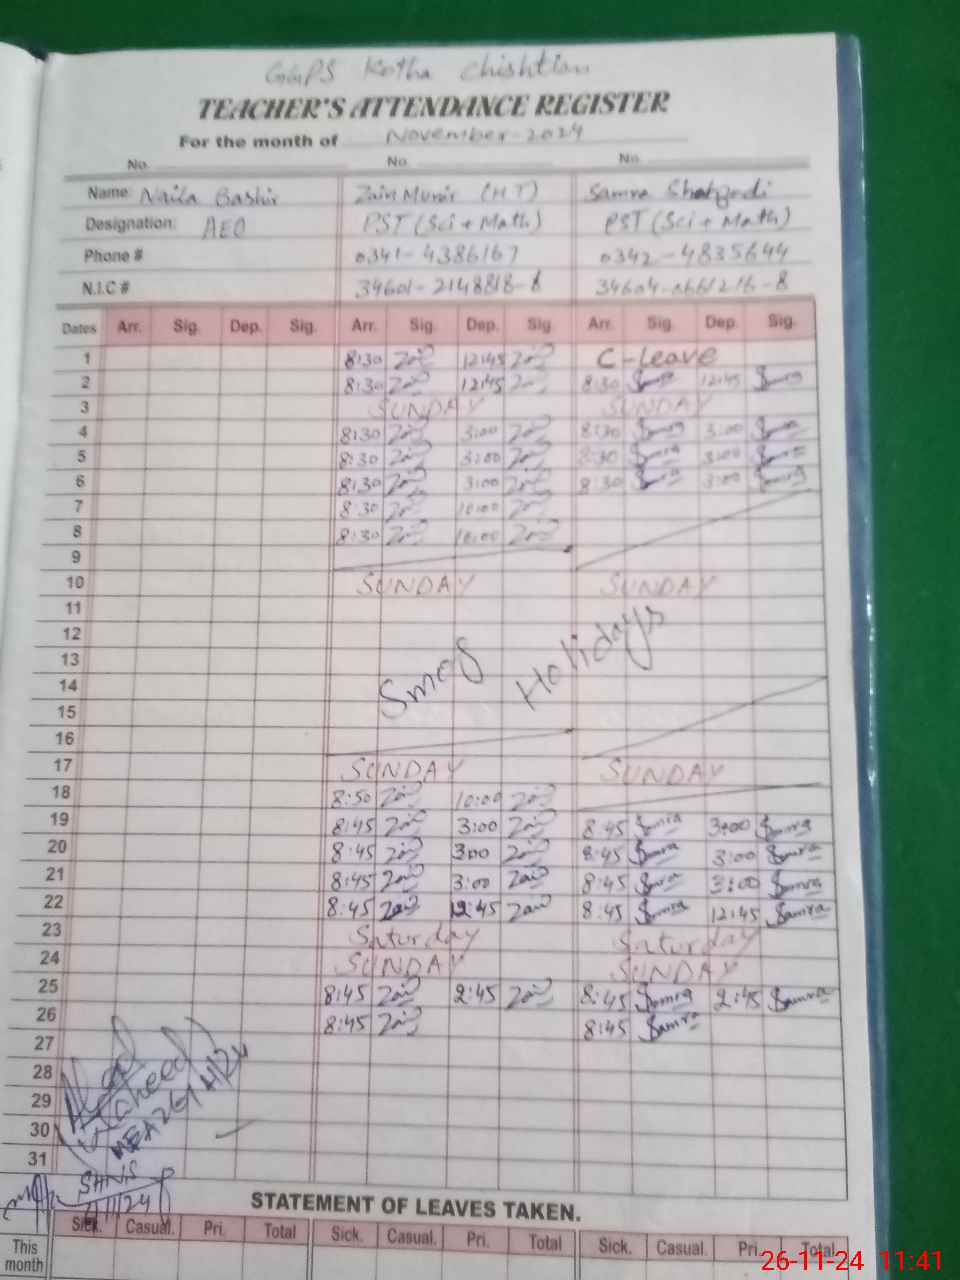 GGPS Kotha Chishtian
TEACHER'S ATTENDANCE REGISTER
For the month of November-2024
No. No. No.
Name: Naila Bashir Zain Munir (HT) Samra Shahzadi
Designation: AEO PST (Sci + Math) PST (Sci + Math)
Phone # 0341-4386167 0342-4835644
N.I.C # 34601-2148818-8 34604-0661216-8
Dates Arr. Sig. Dep. Sig. Arr. Sig. Dep. Sig. Arr. Sig. Dep. Sig.
1 8:30 Zain 12:45 Zain C-leave
2 8:30 Zain 12:45 Zain 8:30 Samra 12:45 Samra
3 SUNDAY SUNDAY
4 8:30 Zain 3:00 Zain 8:30 Samra 3:00 Samra
5 8:30 Zain 3:00 Zain 8:30 Samra 3:00 Samra
6 8:30 Zain 3:00 Zain 8:30 Samra 3:00 Samra
7 8:30 Zain 10:00 Zain
8 8:30 Zain 10:00 Zain
9
10 SUNDAY SUNDAY
11
12
13
14 Smog Holidays
15
16
17 SUNDAY SUNDAY
18 8:50 Zain 10:00 Zain
19 8:45 Zain 3:00 Zain 8:45 Samra 3:00 Samra
20 8:45 Zain 3:00 Zain 8:45 Samra 3:00 Samra
21 8:45 Zain 3:00 Zain 8:45 Samra 3:00 Samra
22 8:45 Zain 12:45 Zain 8:45 Samra 12:45 Samra
23 Saturday Saturday
24 SUNDAY SUNDAY
25 8:45 Zain 2:45 Zain 8:45 Samra 2:45 Samra
26 8:45 Zain 8:45 Samra
27
28
29
30
31
Waheed
MEA 26/11/24
SHNS
STATEMENT OF LEAVES TAKEN.
Sick. Casual. Pri. Total Sick. Casual. Pri. Total Sick. Casual. Pri. Total
This month
26-11-24 11:41